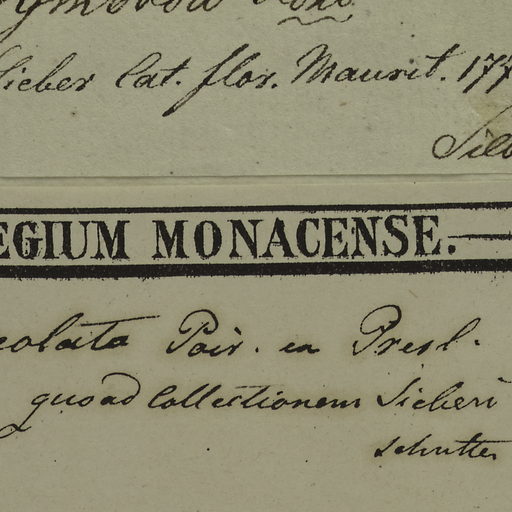 Sieber Cat. flor. Maurit. 177
Sieb
EGIUM MONACENSE.
colata Poir. ex Presl.
quoad Collectionem Sieberi